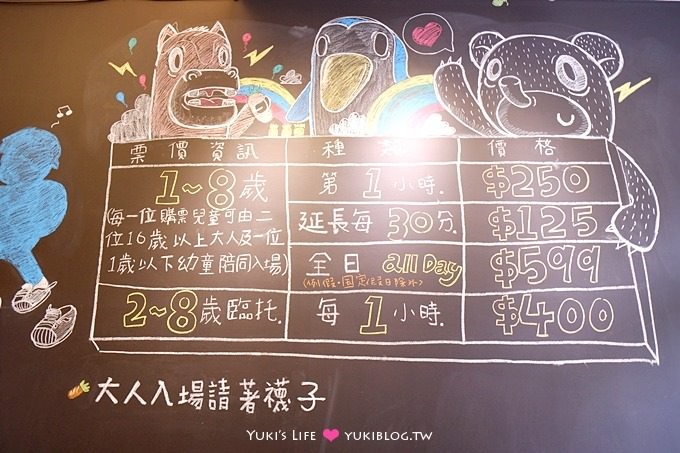 票價資訊 種類 價格
1~8歲 第1小時. $250
(每一位購票兒童可由二
位16歲以上大人及一位
1歲以下幼童陪同入場)
延長每30分. $125
全日 all Day $599
(例假.國定假日除外)
2~8歲臨托. 每1小時. $400
大人入場請著襪子
YUKI'S LIFE YUKIBLOG.TW